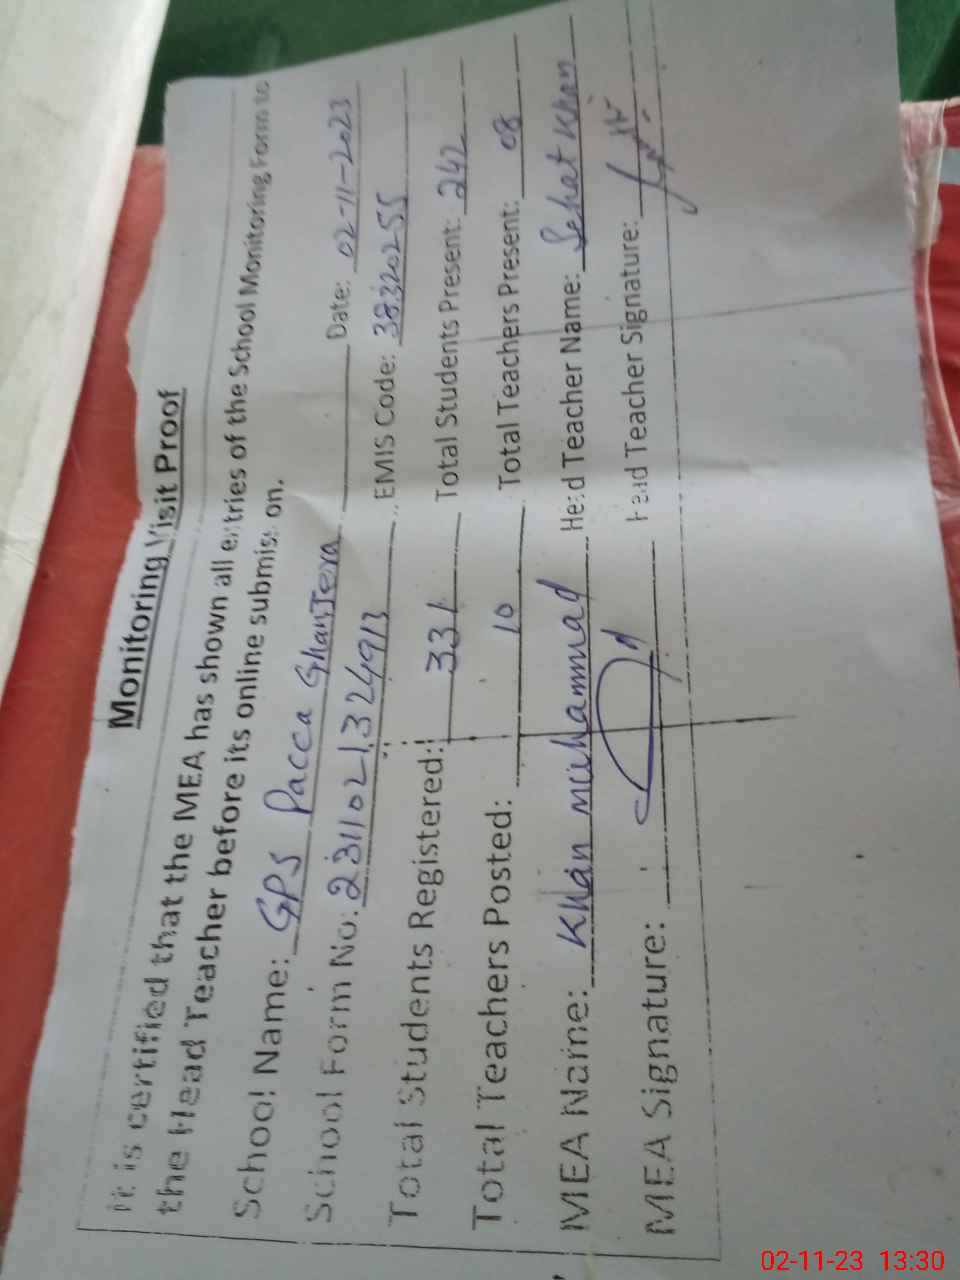 Monitoring Visit Proof
It is certified that the MEA has shown all entries of the School Monitoring Form to
the Head Teacher before its online submission.
School Name: GPS Pacca Ghanjera Date: 02-11-2023
School Form No: 2311021324913 EMIS Code: 38320255
Total Students Registered: 331 Total Students Present: 242
Total Teachers Posted: 10 Total Teachers Present: 08
MEA Name: Khan muhammad Head Teacher Name: Sehat Khan
MEA Signature: Head Teacher Signature:
02-11-23 13:30